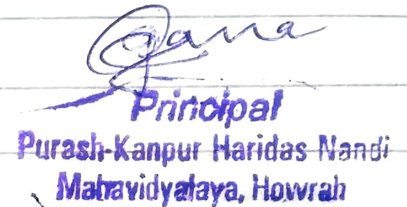 Principal
Purash-Kanpur Haridas Nandi
Mahavidyalaya, Howrah